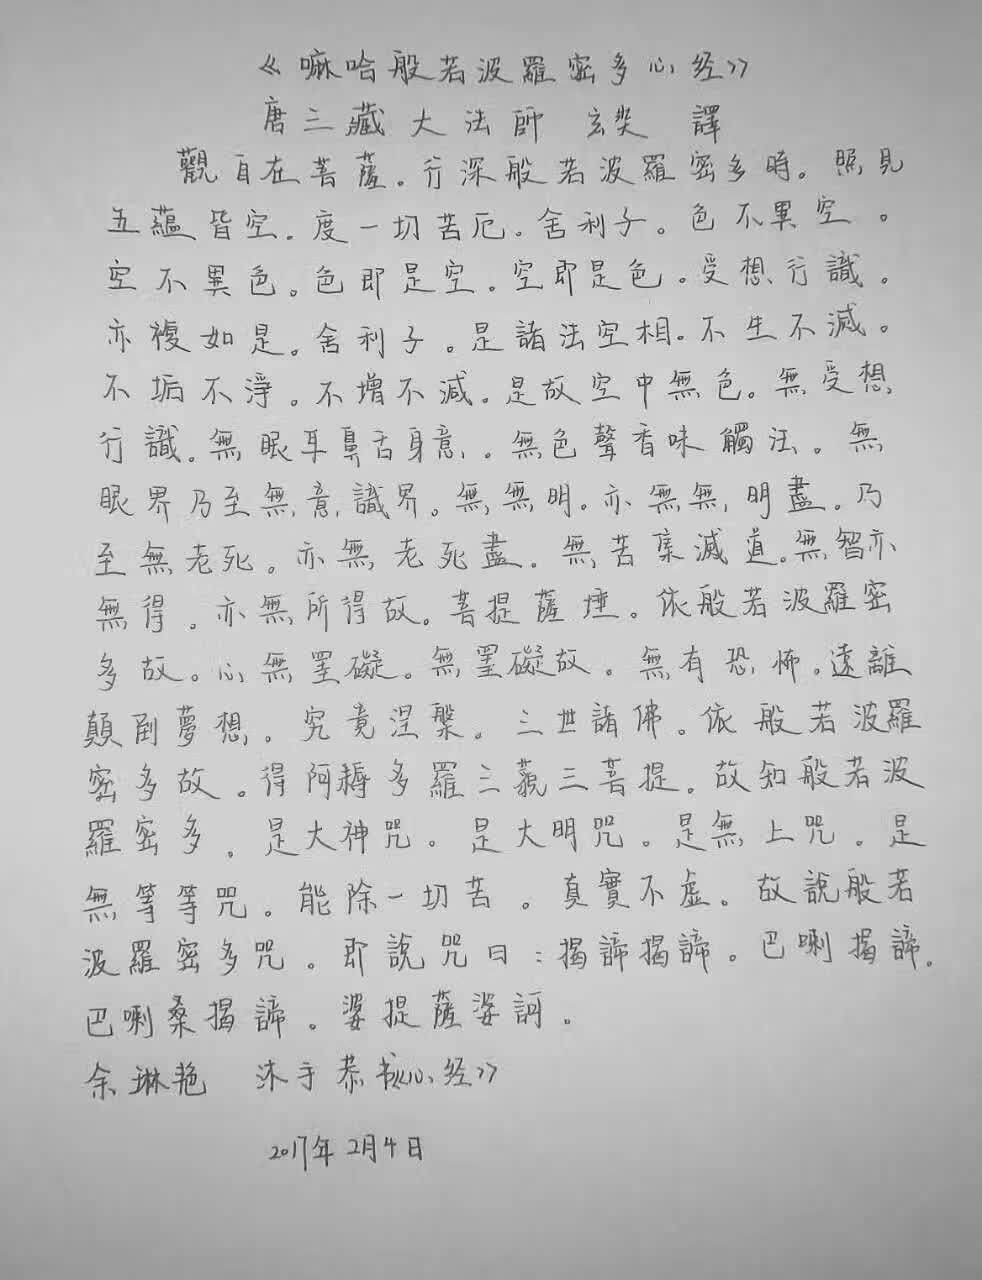 《嘛哈般若波羅密多心经》
唐三藏大法師 玄奘 譯
觀自在菩薩。行深般若波羅密多時。照見
五蘊皆空。度一切苦厄。舍利子。色不異空。
空不異色。色即是空。空即是色。受想行識。
亦複如是。舍利子。是諸法空相。不生不滅。
不垢不淨。不增不減。是故空中無色。無受想
行識。無眼耳鼻舌身意。無色聲香味觸法。無
眼界乃至無意識界。無無明。亦無無明盡。乃
至無老死。亦無老死盡。無苦集滅道。無智亦
無得。亦無所得故。菩提薩埵。依般若波羅密
多故。心無罣礙。無罣礙故。無有恐怖。遠離
顛倒夢想。究竟涅槃。三世諸佛。依般若波羅
密多故。得阿耨多羅三藐三菩提。故知般若波
羅密多。是大神咒。是大明咒。是無上咒。是
無等等咒。能除一切苦。真實不虛。故說般若
波羅密多咒。即說咒曰：揭諦揭諦。巴唎揭諦。
巴唎桑揭諦。婆提薩婆訶。
余琳艳 沐手恭书《心经》
2017年2月4日